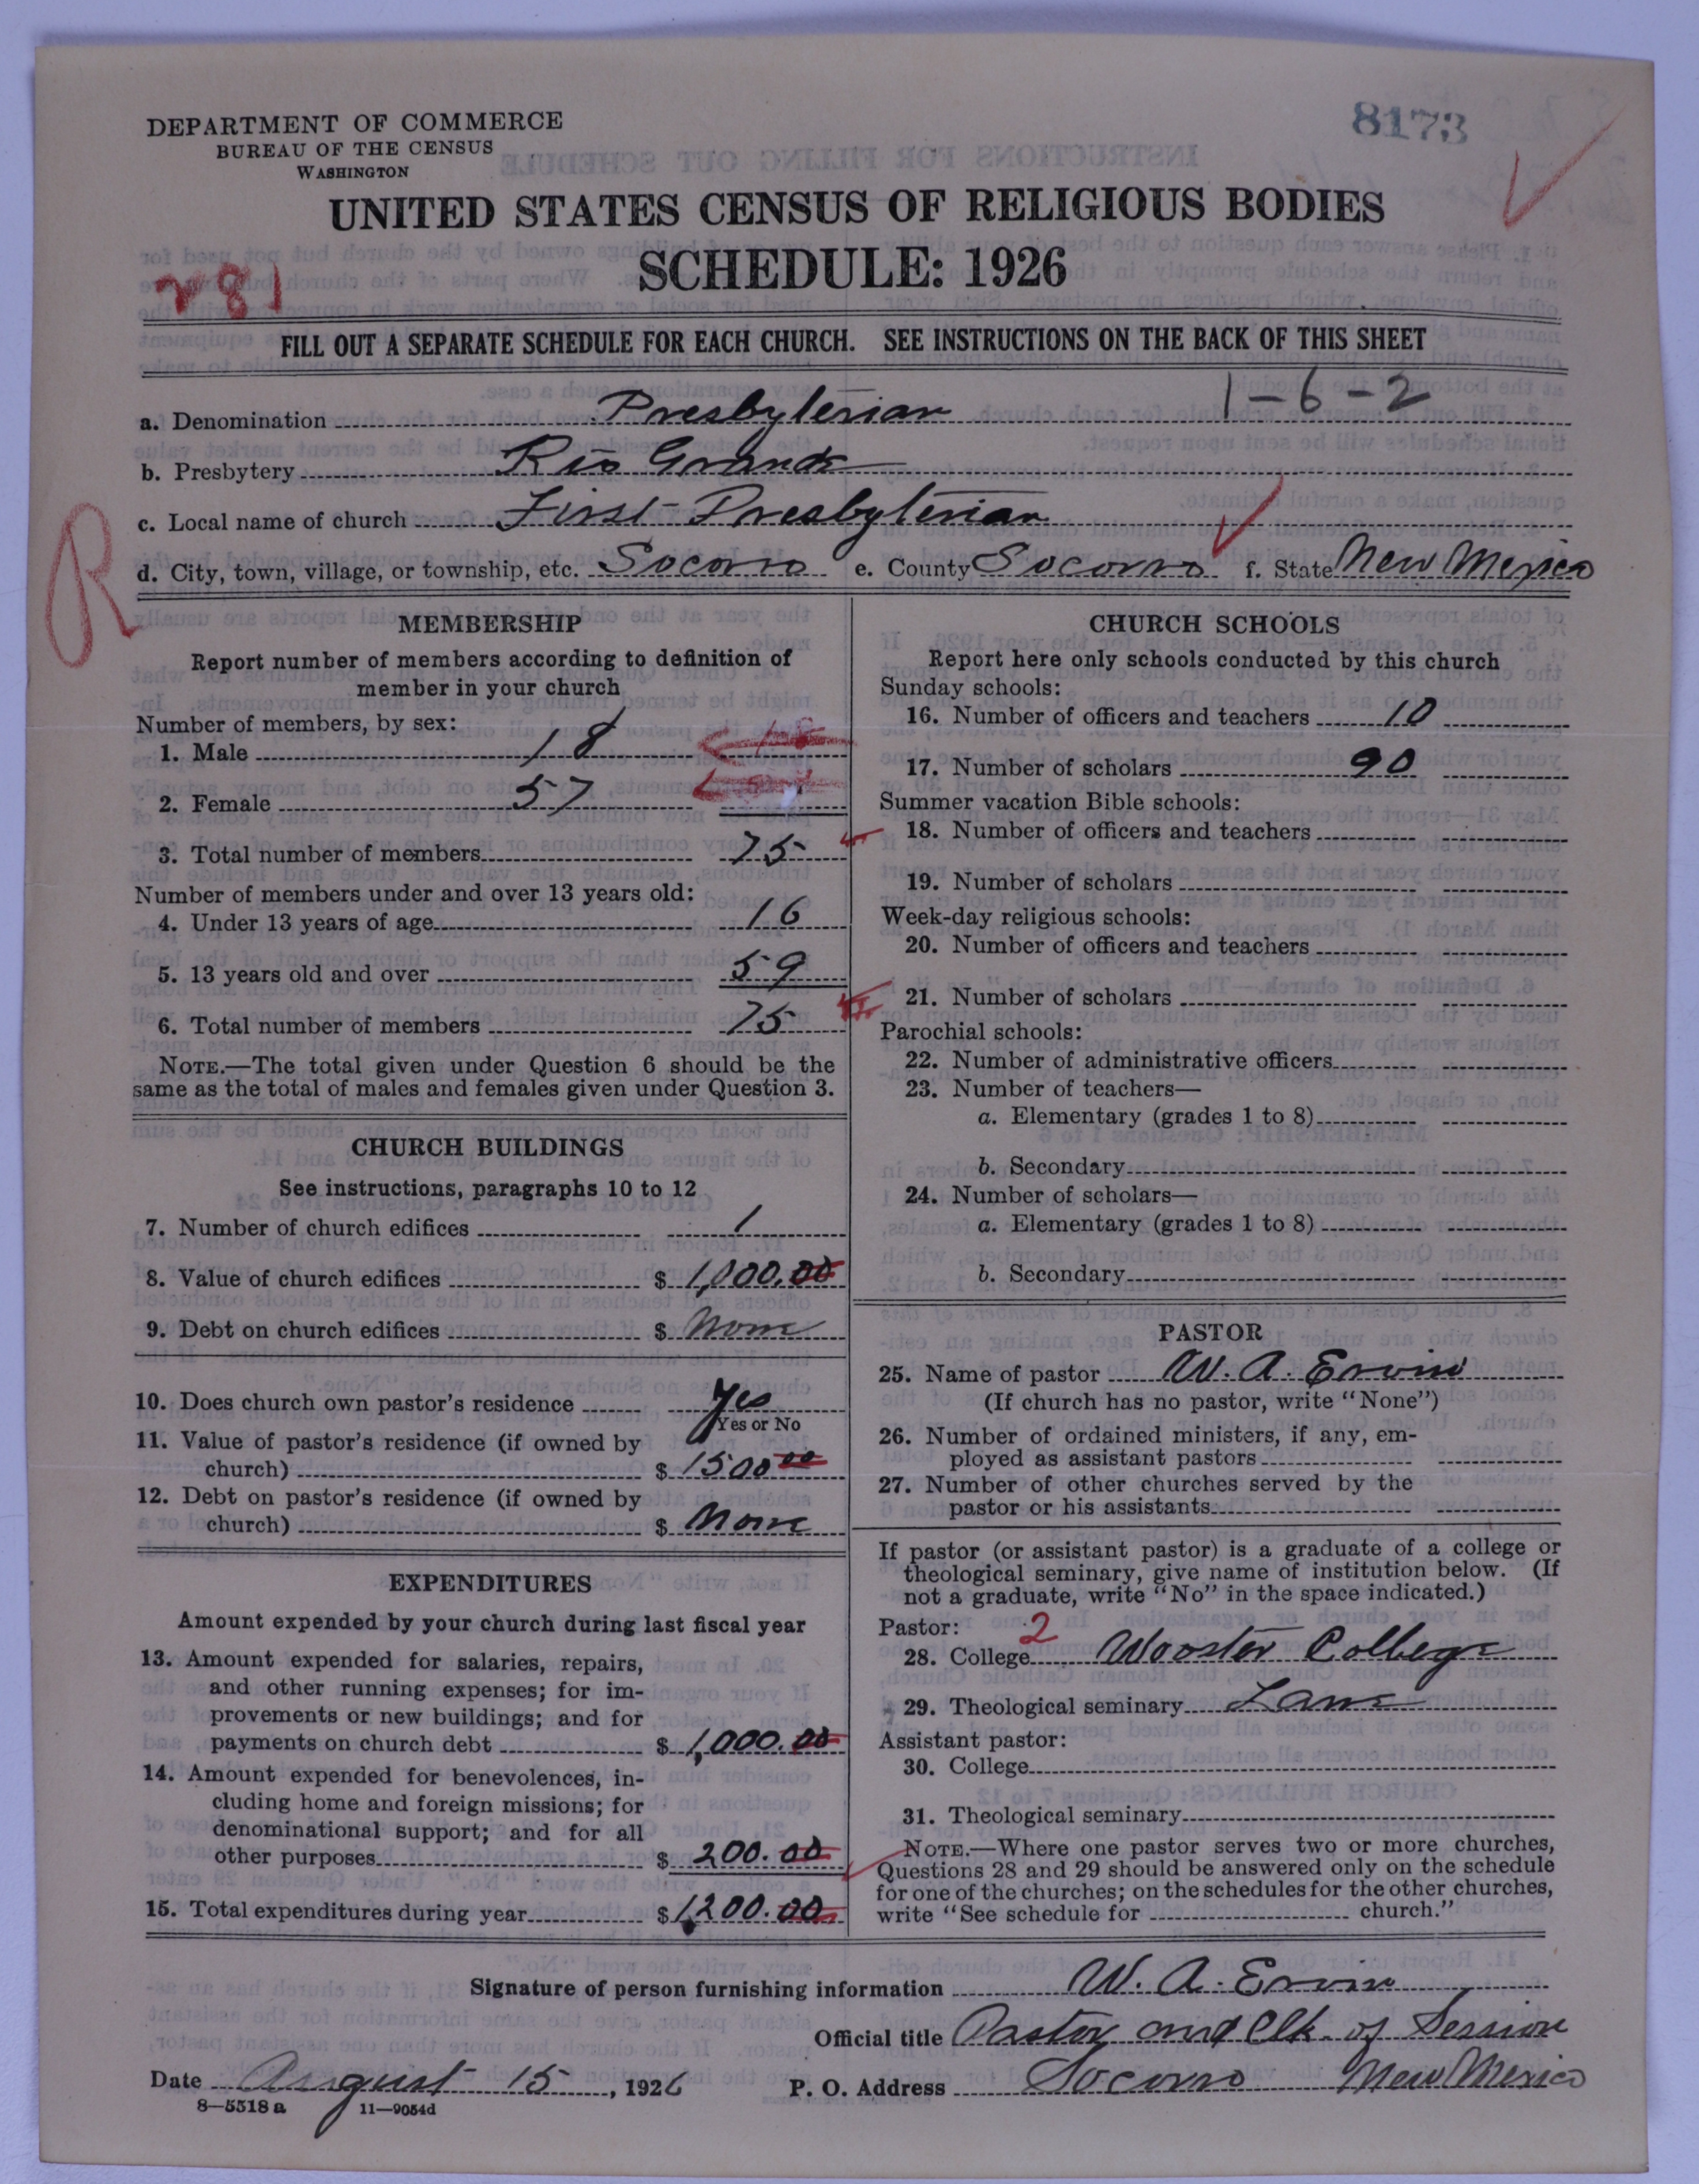 8173
DEPARTMENT OF COMMERCE
BUREAU OF THE CENSUS
WASHINGTON
UNITED STATES CENSUS OF RELIGIOUS BODIES
SCHEDULE: 1926
281
FILL OUT A SEPARATE SCHEDULE FOR EACH CHURCH. SEE INSTRUCTIONS ON THE BACK OF THIS SHEET
1-6-2
a. Denomination Presbyterian
b. Presbytery Rio Grande
c. Local name of church First Presbyterian
R
d. City, town, village, or township, etc. Socorro e. County Socorro f. State New Mexico
MEMBERSHIP
Report number of members according to definition of
member in your church
Number of members, by sex:
1. Male 18
2. Female 57
3. Total number of members 75
Number of members under and over 13 years old:
4. Under 13 years of age 16
5. 13 years old and over 59
6. Total number of members 75
NOTE.—The total given under Question 6 should be the
same as the total of males and females given under Question 3.
CHURCH BUILDINGS
See instructions, paragraphs 10 to 12
7. Number of church edifices 1
8. Value of church edifices $ 1,000.00
9. Debt on church edifices $ None
10. Does church own pastor's residence Yes
Yes or No
11. Value of pastor's residence (if owned by
church) $ 1500 00
12. Debt on pastor's residence (if owned by
church) $ None
EXPENDITURES
Amount expended by your church during last fiscal year
13. Amount expended for salaries, repairs,
and other running expenses; for im-
provements or new buildings; and for
payments on church debt $ 1,000.00
14. Amount expended for benevolences, in-
cluding home and foreign missions; for
denominational support; and for all
other purposes $ 200.00
15. Total expenditures during year $ 1,200.00
CHURCH SCHOOLS
Report here only schools conducted by this church
Sunday schools:
16. Number of officers and teachers 10
17. Number of scholars 90
Summer vacation Bible schools:
18. Number of officers and teachers
19. Number of scholars
Week-day religious schools:
20. Number of officers and teachers
21. Number of scholars
Parochial schools:
22. Number of administrative officers
23. Number of teachers—
a. Elementary (grades 1 to 8)
b. Secondary
24. Number of scholars—
a. Elementary (grades 1 to 8)
b. Secondary
PASTOR
25. Name of pastor W. A. Ervin
(If church has no pastor, write "None")
26. Number of ordained ministers, if any, em-
ployed as assistant pastors
27. Number of other churches served by the
pastor or his assistants
If pastor (or assistant pastor) is a graduate of a college or
theological seminary, give name of institution below. (If
not a graduate, write "No" in the space indicated.)
Pastor: 2
28. College Wooster College
29. Theological seminary Lane
Assistant pastor:
30. College
31. Theological seminary
NOTE.—Where one pastor serves two or more churches,
Questions 28 and 29 should be answered only on the schedule
for one of the churches; on the schedules for the other churches,
write "See schedule for church."
Signature of person furnishing information W. A. Ervin
Official title Pastor and Clk. of Session
Date August 15, 1926 P. O. Address Socorro New Mexico
8—5518 a 11—9054d